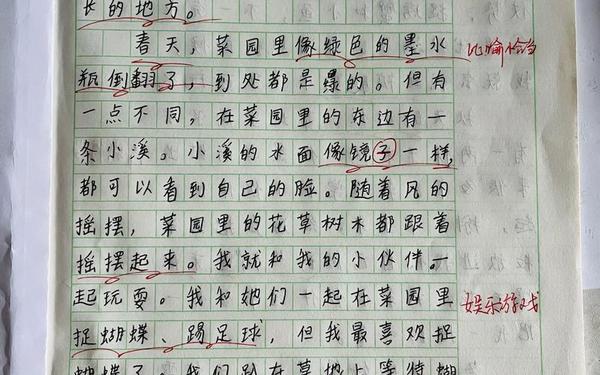 长的地方。
春天，菜园里像绿色的墨水 比喻恰当
瓶倒翻了，到处都是绿的。但有
一点不同，在菜园里的东边有一
条小溪。小溪的水面像镜子一样，
都可以看到自己的脸。随着风的
摇摆，菜园里的花草树木都跟着
摇摆起来。我就和我的小伙伴一
起玩耍。我和她们一起在菜园里 娱乐游戏
捉蝴蝶、踢足球，但我最喜欢捉
蝴蝶了。我们趴在草地上等待蝴